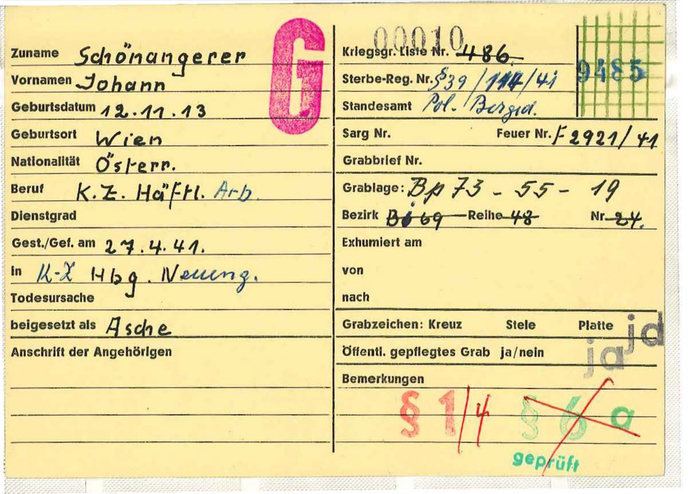 Zuname Schönangerer
Vornamen Johann
Geburtsdatum 12.11.13
Geburtsort Wien
Nationalität Österr.
Beruf K.Z. Häftl. Arb.
Dienstgrad
Gest./Gef. am 27.4.41.
in K-Z Hbg. Neueng.
Todesursache
beigesetzt als Asche
Anschrift der Angehörigen
G
00010
Kriegsgr. Liste Nr. 486.
9485
Sterbe-Reg. Nr. §39/114/41
Standesamt Pol. Berged.
Sarg Nr. Feuer Nr. F 2921/41
Grabbrief Nr.
Grablage: Bp 73 - 55 - 19
Bezirk 69 Reihe 48 Nr. 24.
Exhumiert am
von
nach
Grabzeichen: Kreuz Stele Platte jd
Öffentl. gepflegtes Grab ja/nein ja
Bemerkungen
§ 1/4 § 6 a
geprüft